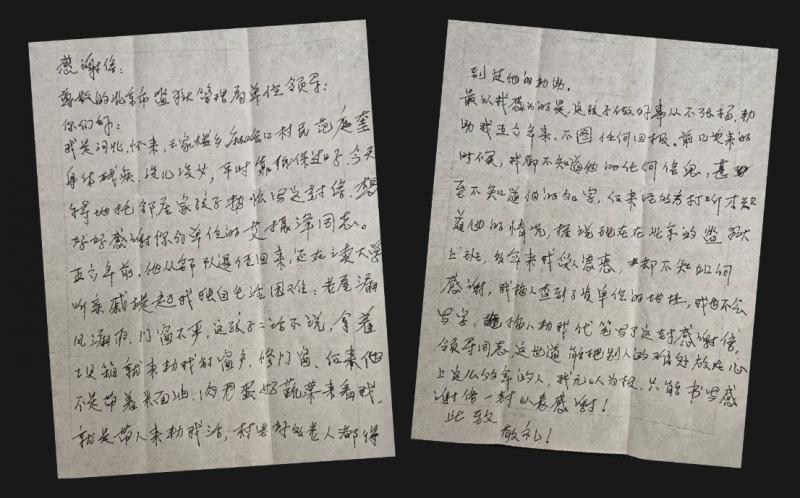 感谢信:
尊敬的北京市监狱管理局单位领导:
你们好:
我是河北,怀来,王家楼乡 村民范庭奎
身体残疾、没儿没女,平时靠低保过日子,今天
特地托邻居家孩子帮忙写这封信,想
好好感谢你们单位的艾振泽同志。
五六年前,他从部队退伍回来,还在上卖大学
听亲戚提起我独自生活困难:老屋漏
风漏雨,门窗不平,这孩子二话不说,拿着
工具箱就来助我钉窗户,修门窗、后来他
不是带着米面油,肉鸡蛋好蔬菜来看我,
就是带人来助我活,村里好多老人都得
到过他的助助。
最让我感动的是,这孩子做好事从不张扬,助
助我五六多来,不图任何回报。前几年来的
时候,我都不知道他的任何信息,甚
至不知道他的名字,后来经多方打听才知
道他的情况,据说现在在北京的监狱
上班,多年来我受恩惠,却不知如何
感谢,我托人查到了贵单位的地址,我也不会
写字,托人助我代笔写了这封感谢信,
领导同志,这世道能把别人的难处放在心
上这么多年的人,我无以为报,只能书写感
谢信一封以表感谢!
此致
敬礼!